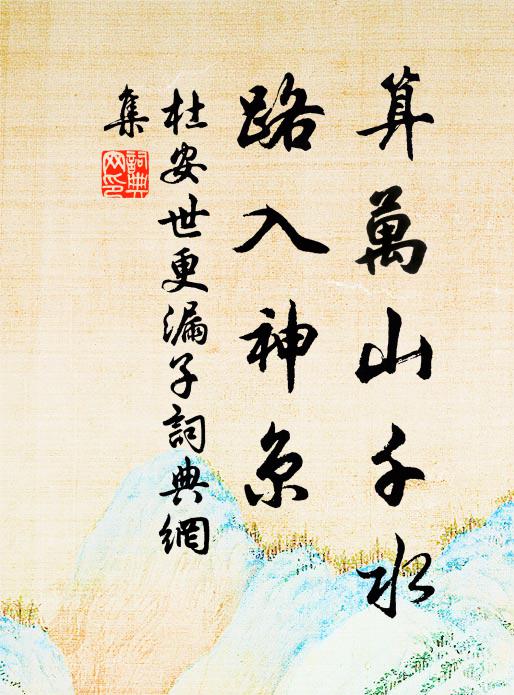 算萬山千水
路入神京
杜安世更漏子詞典網
集
詞典網印